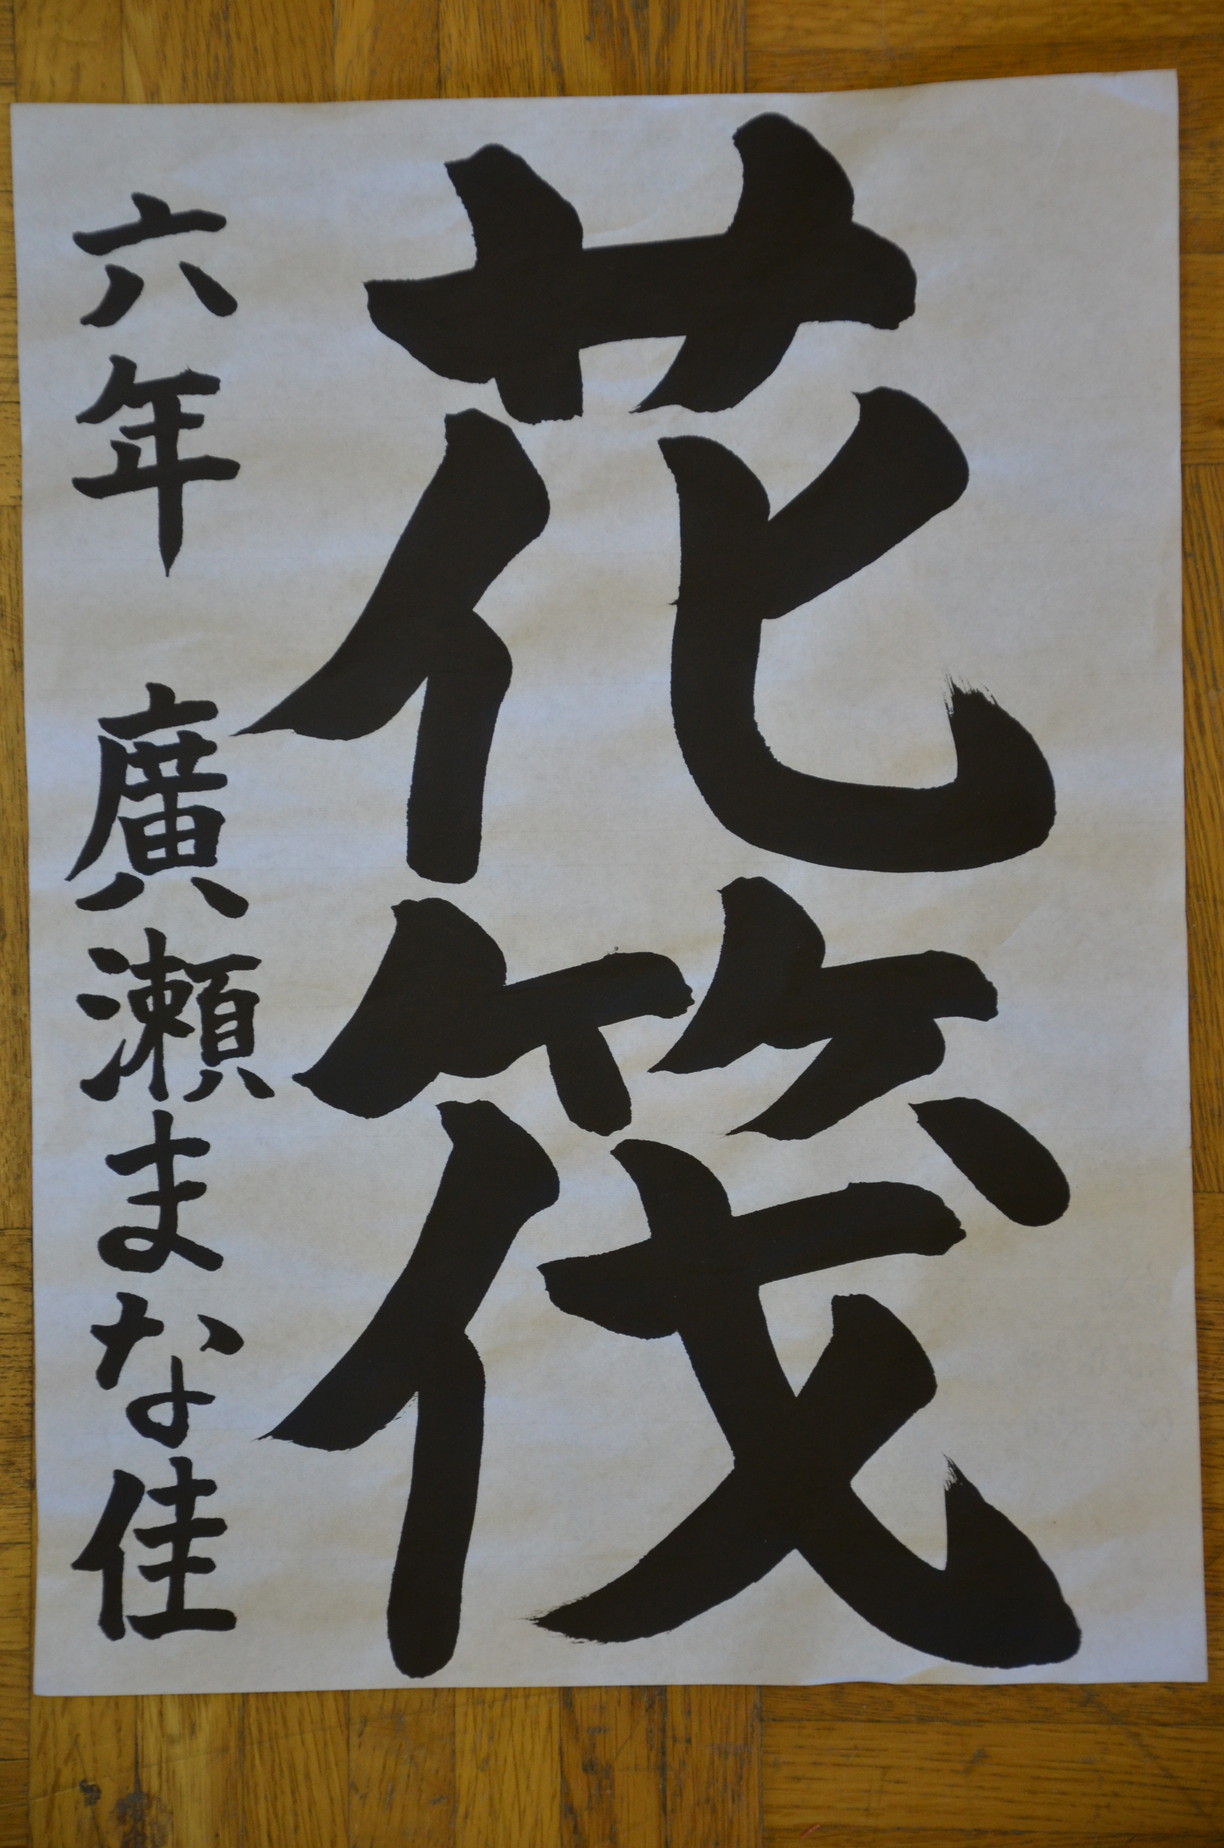 花筏
六年 廣瀬まな佳